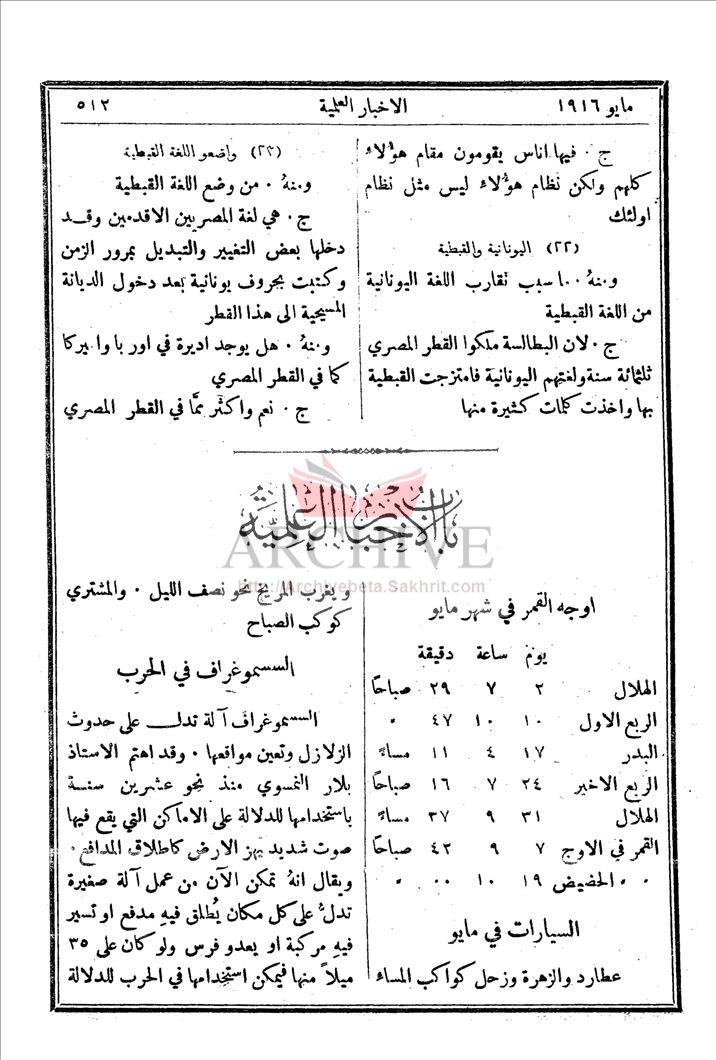 مايو ١٩١٦
الاخبار العلمية
٥١٣
ج . فيها اناس يقومون مقام هؤلاء
كلهم ولكن نظام هؤلاء ليس مثل نظام
اولئك
(٢٢) اليونانية والقبطية
ومنهُ . ما سبب تقارب اللغة اليونانية
من اللغة القبطية
ج . لان البطالسة ملكوا القطر المصري
ثلثمائة سنة ولغتهم اليونانية فامتزجت القبطية
بها واخذت كلمات كثيرة منها
(٢٣) واضعو اللغة القبطية
ومنهُ . من وضع اللغة القبطية
ج . هي لغة المصريين الاقدمين وقد
دخلها بعض التغيير والتبديل بمرور الزمن
وكتبت بحروف يونانية بعد دخول الديانة
المسيحية الى هذا القطر
ومنهُ . هل يوجد اديرة في اوربا واميركا
كما في القطر المصري
ج . نعم واكثر ممَّا في القطر المصري
باب الأخبار العلمية
ARCHIVE
http://Archivebeta.Sakhrit.com
اوجه القمر في شهر مايو
يوم ساعة دقيقة
الهلال ٢ ٧ ٢٩ صباحًا
الربع الاول ١٠ ١٠ ٤٧ "
البدر ١٧ ٤ ١١ مساءً
الربع الاخير ٢٤ ٧ ١٦ صباحًا
الهلال ٣١ ٩ ٣٧ مساءً
القمر في الاوج ٧ ٩ ٤٢ صباحًا
" " الحضيض ١٩ ١٠ ٠٠ "
السيارات في مايو
عطارد والزهرة وزحل كواكب المساء
ويغرب المريخ نحو نصف الليل . والمشتري
كوكب الصباح
السسموغراف في الحرب
السسموغراف آلة تدل على حدوث
الزلازل وتعين مواقعها . وقد اهتم الاستاذ
بلار النمسوي منذ نحو عشرين سنة
باستخدامها للدلالة على الاماكن التي يقع فيها
صوت شديد يهز الارض كاطلاق المدافع .
ويقال انهُ تمكن الآن من عمل آلة صغيرة
تدلُّ على كل مكان يُطلق فيهِ مدفع او تسير
فيهِ مركبة او يعدو فرس ولو كان على ٣٥
ميلاً منها فيمكن استخدامها في الحرب للدلالة